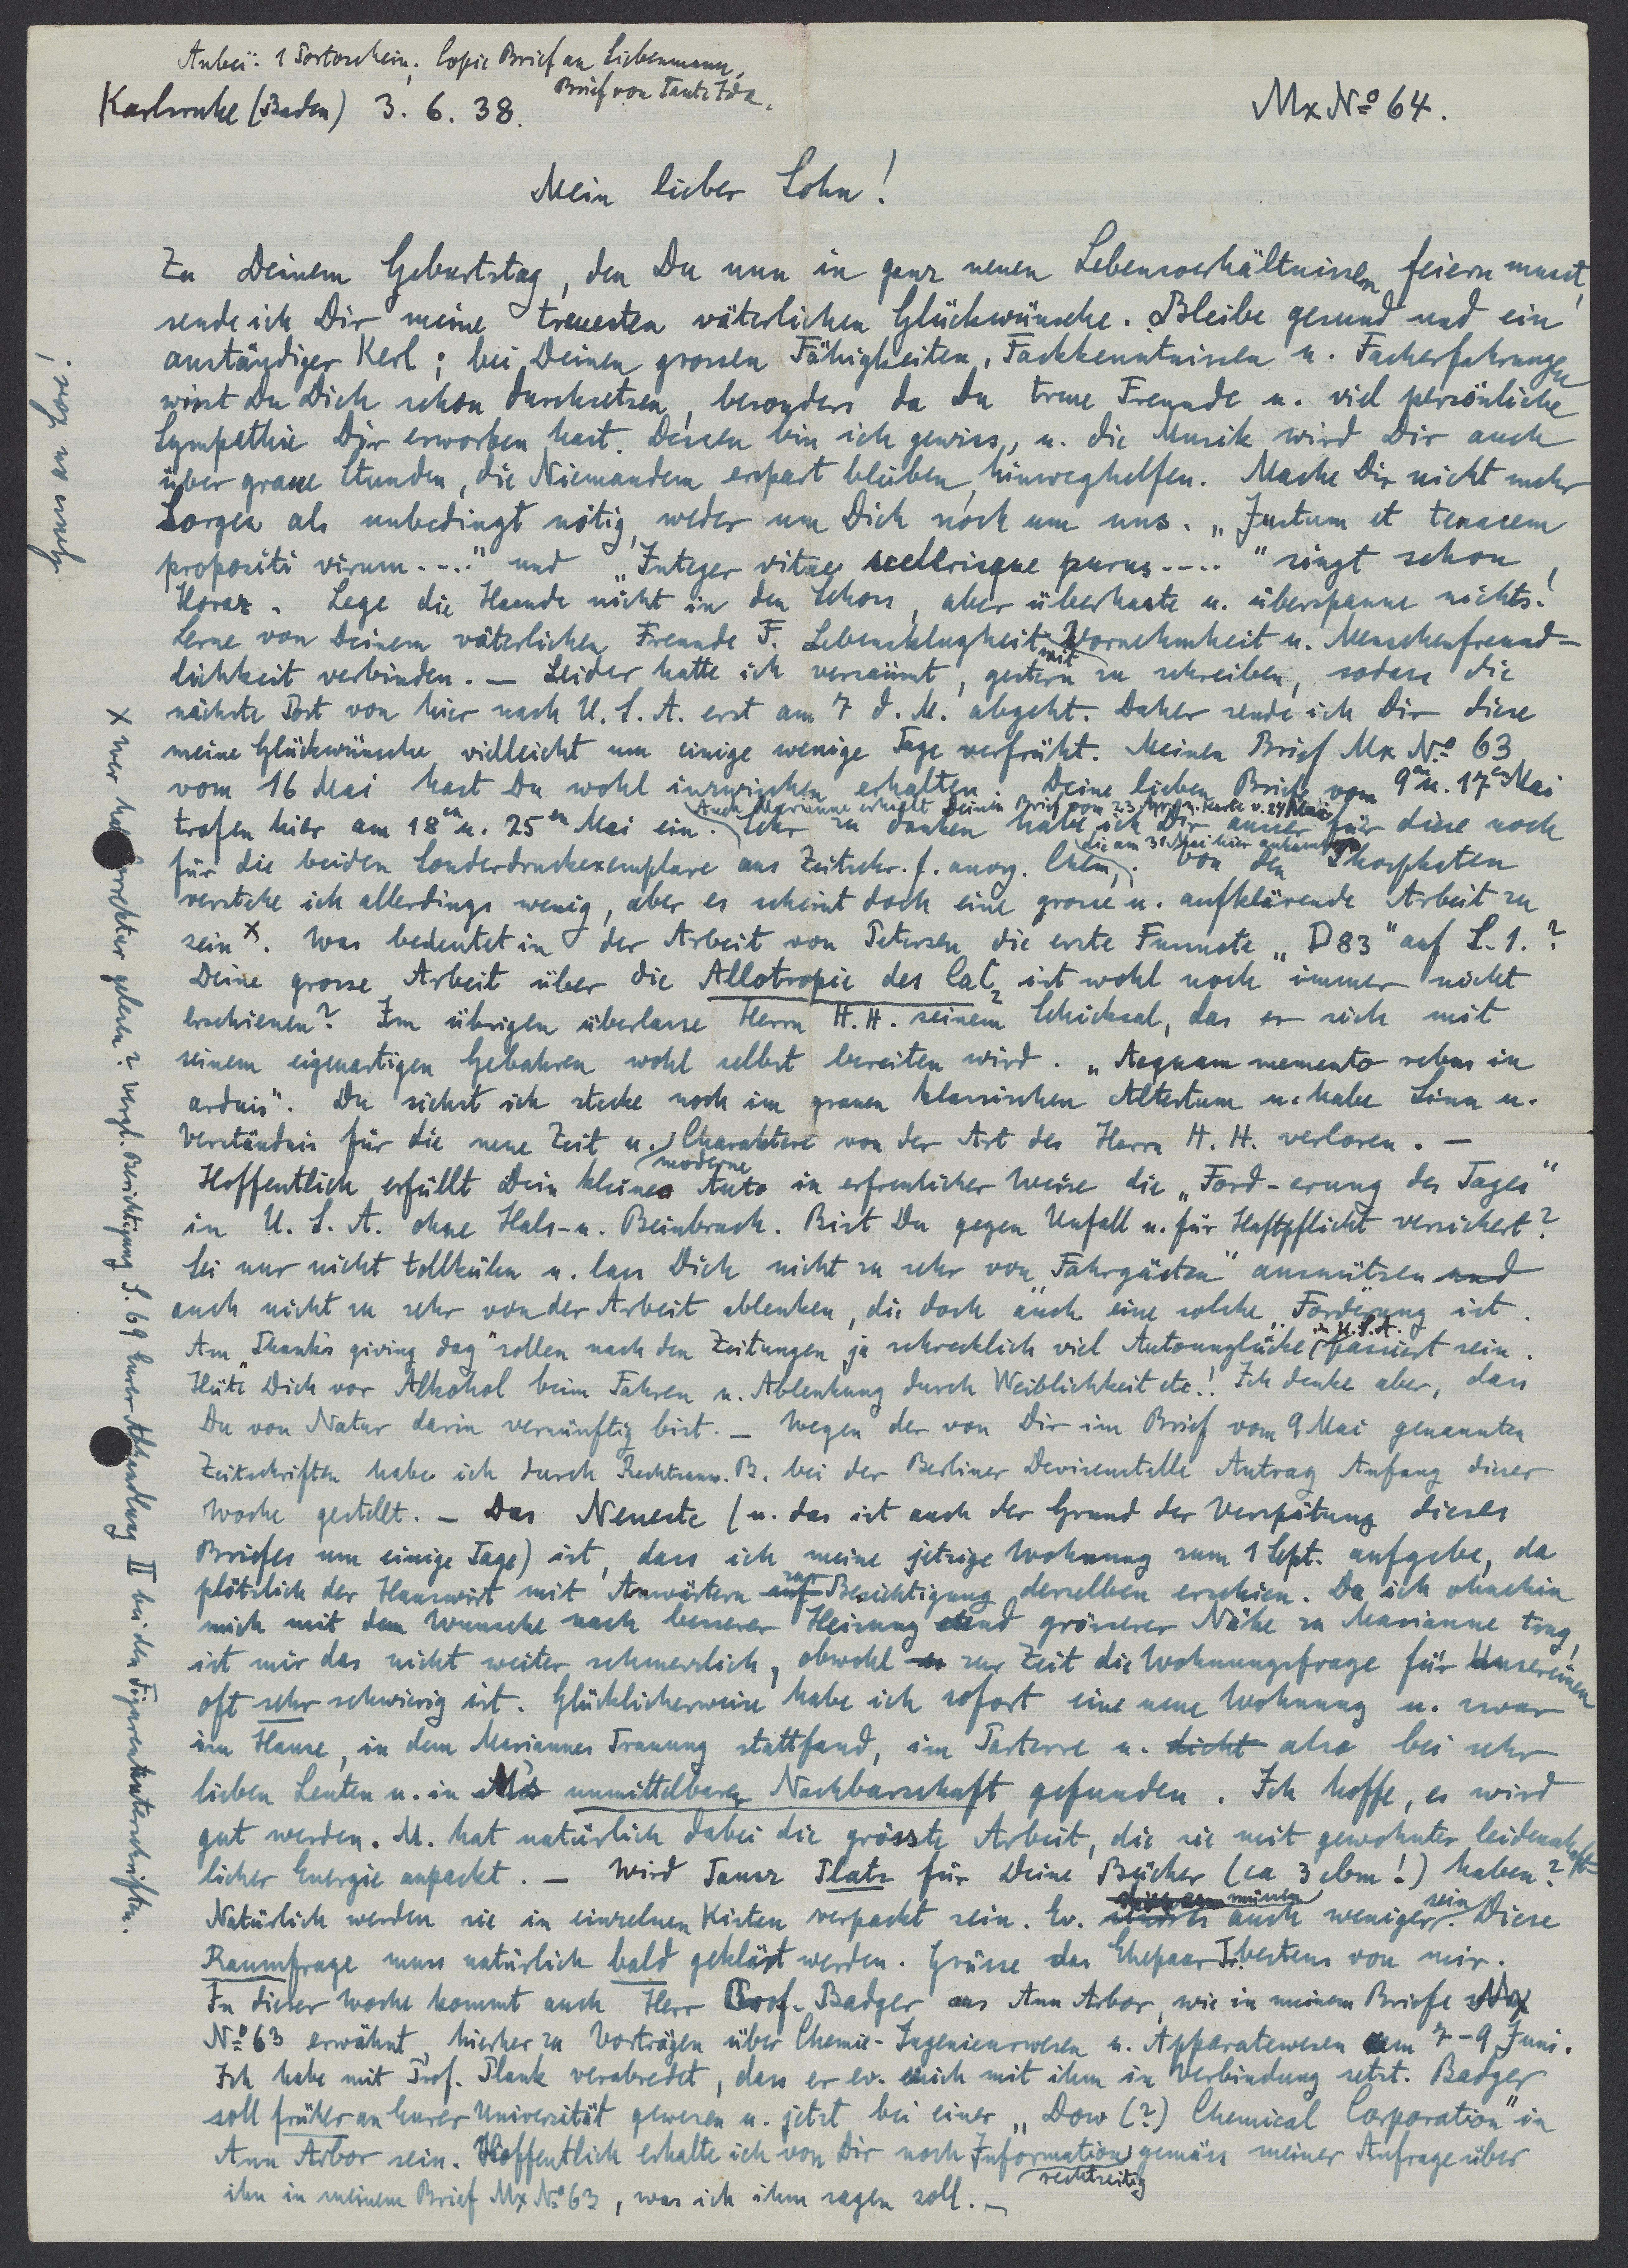 Anbei: 1 Portoschein; Copie Brief an Liebenmann,
Brief von Tante Ida.
Karlsruhe (Baden) 3. 6. 38.
Mx No 64.
Mein lieber Sohn!
Zu Deinem Geburtstag, den Du nun in ganz neuen Lebensverhältnissen feiern musst,
sende ich Dir meine treuesten väterlichen Glückwünsche. Bleibe gesund und ein
anständiger Kerl; bei Deinen grossen Fähigkeiten, Fachkenntnissen u. Facherfahrungen
wirst Du Dich schon durchsetzen, besonders da Du treue Freunde u. viel persönliche
Sympathie Dir erworben hast. Dessen bin ich gewiss, u. die Musik wird Dir auch
über graue Stunden, die Niemandem erspart bleiben, hinweghelfen. Mache Dir nicht mehr
Sorgen als unbedingt nötig, weder um Dich noch um uns. „Justum et tenacem
propositi virum...." und „Integer vitae scelerisque purus...." singt schon
Horaz. Lege die Haende nicht in den Schoss, aber überhaste u. überspanne nichts!
Lerne von Deinem väterlichen Freunde F. Lebensklugheit mit Vornehmheit u. Menschenfreund-
lichkeit verbinden. — Leider hatte ich versäumt, gestern zu schreiben, sodass die
nächste Post von hier nach U.S.A. erst am 7 d. M. abgeht. Daher sende ich Dir diese
meine Glückwünsche vielleicht um einige wenige Tage verfrüht. Meinen Brief Mx No 63
vom 16 Mai hast Du wohl inzwischen erhalten. Deine lieben Briefe vom 9en u. 17en Mai
trafen hier am 18en u. 25en Mai ein. Auch Marianne erhielt Deinen Brief vom 23 Apr. u. Karte v. 24 Mai. Sehr zu danken habe ich Dir ausser für diese noch
für die beiden Sonderdruckexemplare aus Zeitschr. f. anorg. Chem., die am 31 Mai hier ankamen. Von den Phosphaten
verstehe ich allerdings wenig, aber es scheint doch eine grosse u. aufklärende Arbeit zu
sein x. Was bedeutet in der Arbeit von Petersen die erste Fussnote „D83" auf S. 1.?
Deine grosse Arbeit über die Allotropie des CaC2 ist wohl noch immer nicht
erschienen? Im übrigen überlasse Herrn H. H. seinem Schicksal, das er sich mit
seinem eigenartigen Gebahren wohl selbst bereiten wird. „Aequam memento rebus in
arduis". Du siehst ich stecke noch im grauen klassischen Altertum u. habe Sinn u.
Verständnis für die neue Zeit u. moderne Charaktere von der Art des Herrn H. H. verloren. —
Hoffentlich erfüllt Dein kleines Auto in erfreulicher Weise die „Ford-erung des Tages"
in U.S.A. ohne Hals- u. Beinbruch. Bist Du gegen Unfall u. für Haftpflicht versichert?
Sei nur nicht tollkühn u. lass Dich nicht zu sehr von „Fahrgästen" ausnützen und
auch nicht zu sehr von der Arbeit ablenken, die doch auch eine solche „Forderung" ist.
Am „Thanks giving day" sollen nach den Zeitungen ja schrecklich viel Autounglücke in U.S.A. passiert sein.
Hüte Dich vor Alkohol beim Fahren u. Ablenkung durch Weiblichkeit etc.! Ich denke aber, dass
Du von Natur darin vernünftig bist. — Wegen der von Dir im Brief vom 9 Mai genannten
Zeitschriften habe ich durch Rechtsanw. B. bei der Berliner Devisenstelle Antrag Anfang dieser
Woche gestellt. — Das Neueste (u. das ist auch der Grund der Verspätung dieses
Briefes um einige Tage) ist, dass ich meine jetzige Wohnung zum 1 Sept. aufgebe, da
plötzlich der Hauswirt mit Anwärtern auf zur Besichtigung derselben erschien. Da ich ohnehin
mich mit dem Wunsche nach besserer Heizung und grösserer Nähe zu Marianne trug,
ist mir das nicht weiter schmerzlich, obwohl es zur Zeit die Wohnungsfrage für Unsereinen
oft sehr schwierig ist. Glücklicherweise habe ich sofort eine neue Wohnung u. zwar
im Hause, in dem Mariannes Trauung stattfand, im Parterre u. dicht also bei sehr
lieben Leuten u. in M's unmittelbarer Nachbarschaft gefunden. Ich hoffe, es wird
gut werden. M. hat natürlich dabei die grösste Arbeit, die sie mit gewohnter leidenschaft-
licher Energie anpackt. — Wird Tausz Platz für Deine Bücher (ca 3 cbm!) haben?
Natürlich werden sie in einzelnen Kisten verpackt sein. Ev. auch weniger sein. Diese
Raumfrage muss natürlich bald geklärt werden. Grüsse das Ehepaar T. bestens von mir.
In dieser Woche kommt auch Herr Prof. Badger aus Ann Arbor, wie in meinem Briefe Mx
No 63 erwähnt, hierher zu Vorträgen über Chemie-Ingenieurwesen u. Apparatewesen am 7-9 Juni.
Ich habe mit Prof. Plank verabredet, dass er ev. mich mit ihm in Verbindung setzt. Badger
soll früher an Eurer Universität gewesen u. jetzt bei einer „Dow (?) Chemical Corporation" in
Ann Arbor sein. Hoffentlich erhalte ich von Dir noch rechtzeitig Information gemäss meiner Anfrage über
ihn in meinem Brief Mx No 63, was ich ihm sagen soll. —
x wer hat Korrektur gelesen? vergl. Berichtigung S. 69 Eurer Abhandlung II bei den Figurenunterschriften.